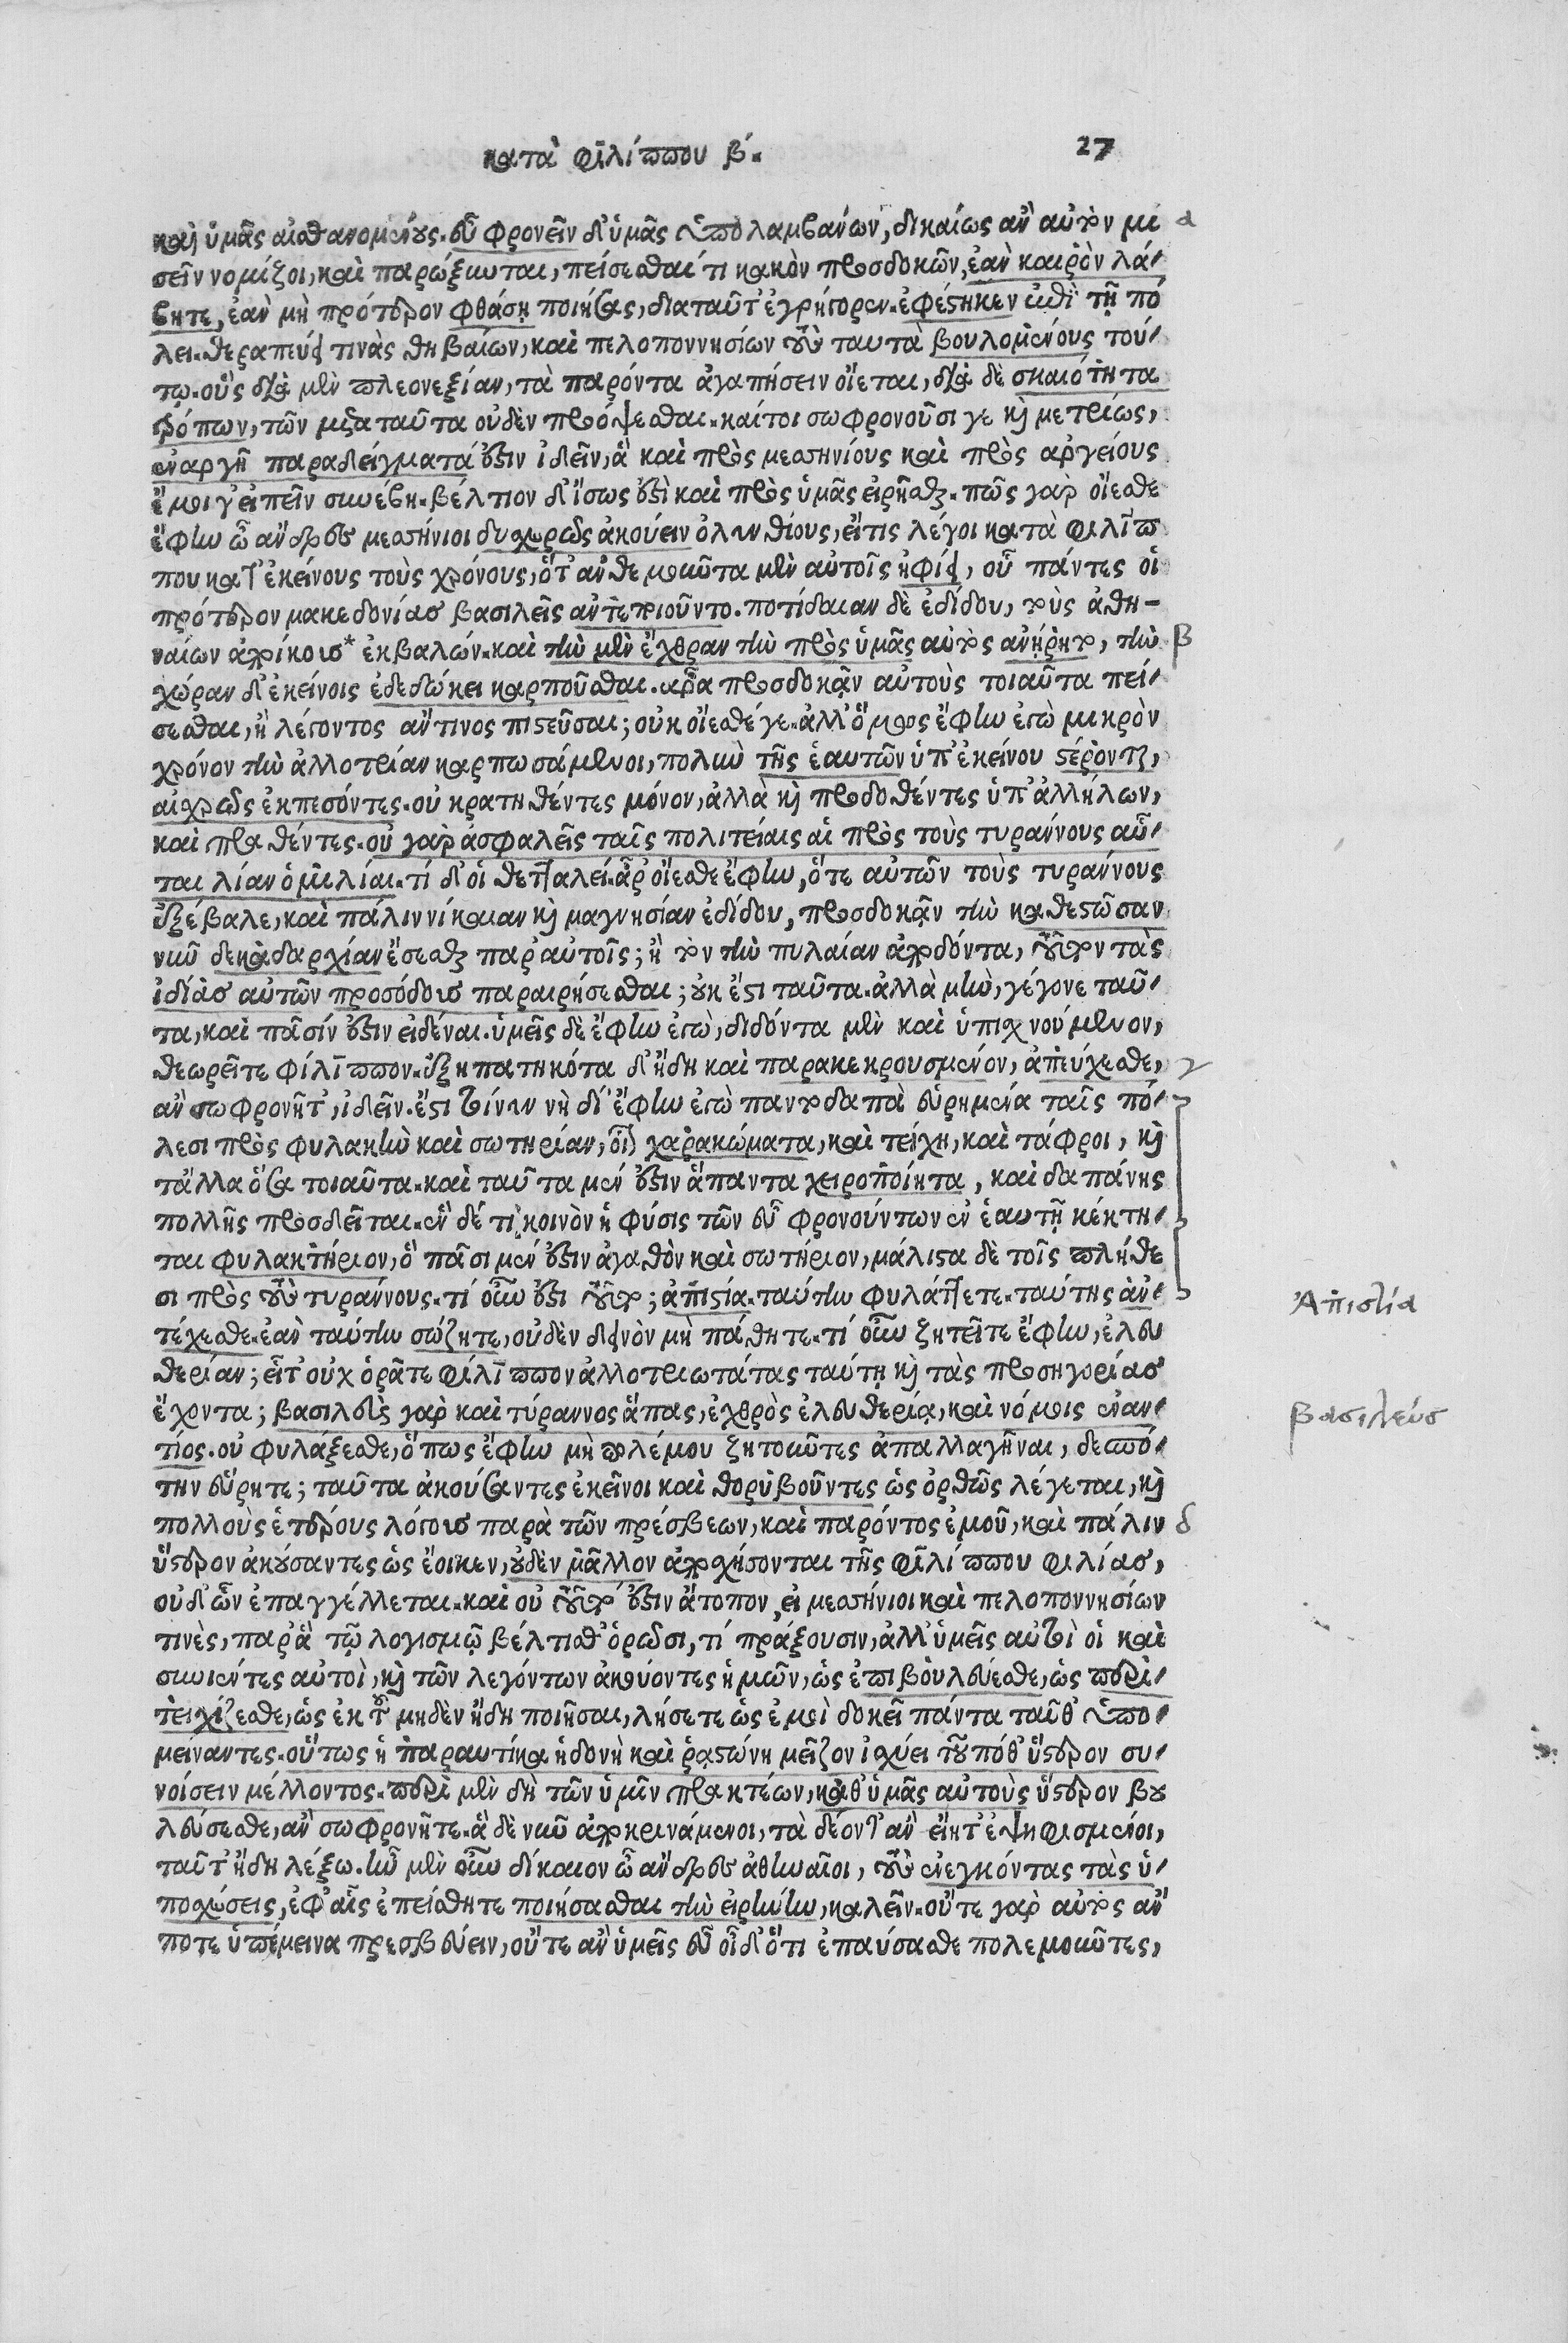 κατὰ Φιλίππου β΄. 27
καὶ ὑμᾶς αἰσθανομένους. εὖ φρονεῖν δ' ὑμᾶς ὑπολαμβάνων, δικαίως ἂν αὐτὸν μι α
σεῖν νομίζοι, καὶ παρώξυνται, πείσεσθαί τι κακὸν προσδοκῶν, ἐὰν καιρὸν λά-
βητε, ἐὰν μὴ πρότερον φθάσῃ ποιήσας, διαταῦτ' ἐγρήγορεν. ἐφέστηκεν ἐπὶ τῇ πό
λει. θεραπεύει τινὰς θηβαίων, καὶ πελοποννησίων τοὺς ταυτὰ βουλομένους τού-
τῳ. οὓς διὰ μὲν πλεονεξίαν, τὰ παρόντα ἀγαπήσειν οἴεται, διὰ δὲ σκαιότητα
τρόπων, τῶν μετὰ ταῦτα οὐδὲν πρόψεσθαι. καίτοι σωφρονοῦσί γε καὶ μετρίως,
ἐναργῆ παραδείγματά ἐστιν ἰδεῖν, ἃ καὶ πρὸς μεσσηνίους καὶ πρὸς ἀργείους
ἔμοιγ' εἰπεῖν συνέβη. βέλτιον δ' ἴσως ἐστὶ καὶ πρὸς ὑμᾶς εἰρῆσθαι. πῶς γὰρ οἴεσθε
ἔφην ὦ ἄνδρες μεσσήνιοι δυσχερῶς ἀκούειν ὀλυνθίους, εἴτις λέγοι κατὰ φιλίπ
που κατ' ἐκείνους τοὺς χρόνους, ὅτ' ἀνθεμοῦντα μὲν αὐτοῖς ἠφίει, οὗ πάντες οἱ
πρότερον μακεδονίας βασιλεῖς ἀντεποιοῦντο. ποτίδαιαν δὲ ἐδίδου, τοὺς ἀθη-
ναίων ἀποίκους* ἐκβαλών. καὶ τὴν μὲν ἔχθραν τὴν πρὸς ὑμᾶς αὐτὸς ἀνῄρητο, τὴν β
χώραν δ' ἐκείνοις ἐδεδώκει καρποῦσθαι. ἆρα προσδοκᾷν αὐτοὺς τοιαῦτα πεί-
σεσθαι, ἢ λέγοντος ἄν τινος πιστεῦσαι; οὐκ οἴεσθέ γε. ἀλλ' ὅμως ἔφην ἐγὼ μικρὸν
χρόνον τὴν ἀλλοτρίαν καρπωσάμενοι, πολὺν τῆς ἑαυτῶν ὑπ' ἐκείνου στέρονται,
αἰσχρῶς ἐκπεσόντες. οὐ κρατηθέντες μόνον, ἀλλὰ καὶ προδοθέντες ὑπ' ἀλλήλων,
καὶ πραθέντες. οὐ γὰρ ἀσφαλεῖς ταῖς πολιτείαις αἱ πρὸς τοὺς τυράννους αὗ-
ται λίαν ὁμιλίαι. τί δ' οἱ θετταλοί. ἆρ' οἴεσθε ἔφην, ὅτε αὐτῶν τοὺς τυράννους
ἐξέβαλε, καὶ πάλιν νίκαιαν καὶ μαγνησίαν ἐδίδου, προσδοκᾷν τὴν καθεστῶσαν
νῦν δεκαδαρχίαν ἔσεσθαι παρ' αὐτοῖς; ἢ τὸν τὴν πυλαίαν ἀποδόντα, τοῦτον τὰς
ἰδίας αὐτῶν προσόδους παραιρήσεσθαι; οὐκ ἔστι ταῦτα. ἀλλὰ μὴν, γέγονε ταῦ-
τα, καὶ πᾶσίν ἐστιν εἰδέναι. ὑμεῖς δὲ ἔφην ἐγὼ, διδόντα μὲν καὶ ὑπισχνούμενον,
θεωρεῖτε φίλιππον. ἐξηπατηκότα δ' ἤδη καὶ παρακεκρουσμένον, ἀπεύχεσθε, γ
ἂν σωφρονῆτ', ἰδεῖν. ἔστι τοίνυν νὴ δί' ἔφην ἐγὼ παντοδαπὰ εὑρημένα ταῖς πό-
λεσι πρὸς φυλακὴν καὶ σωτηρίαν, οἷον χαρακώματα, καὶ τείχη, καὶ τάφροι, καὶ
τἄλλα ὅσα τοιαῦτα. καὶ ταῦτα μέν ἐστιν ἅπαντα χειροποίητα, καὶ δαπάνης
πολλῆς προσδεῖται. ἓν δέ τι κοινὸν ἡ φύσις τῶν εὖ φρονούντων ἐν ἑαυτῇ κέκτη-
ται φυλακτήριον, ὃ πᾶσι μέν ἐστιν ἀγαθὸν καὶ σωτήριον, μάλιστα δὲ τοῖς πλήθε
σι πρὸς τοὺς τυράννους. τί οὖν ἐστι τοῦτο; ἀπιστία. ταύτην φυλάττετε. ταύτης ἀν- Ἀπιστία
τέχεσθε. ἐὰν ταύτην σώζητε, οὐδὲν δεινὸν μὴ πάθητε. τί οὖν ζητεῖτε ἔφην, ἐλευ
θερίαν; εἶτ' οὐχ ὁρᾶτε φίλιππον ἀλλοτριωτάτας ταύτῃ καὶ τὰς προσηγορίας
ἔχοντα; βασιλεὺς γὰρ καὶ τύραννος ἅπας, ἐχθρὸς ἐλευθερίᾳ, καὶ νόμοις ἐναν- βασιλεύς
τίος. οὐ φυλάξεσθε, ὅπως ἔφην μὴ πολέμου ζητοῦντες ἀπαλλαγῆναι, δεσπό-
την εὕρητε; ταῦτα ἀκούσαντες ἐκεῖνοι καὶ θορυβοῦντες ὡς ὀρθῶς λέγεται, καὶ
πολλοὺς ἑτέρους λόγους παρὰ τῶν πρέσβεων, καὶ παρόντος ἐμοῦ, καὶ πάλιν δ
ὕστερον ἀκούσαντες ὡς ἔοικεν, οὐδὲν μᾶλλον ἀποσχήσονται τῆς φιλίππου φιλίας,
οὐδ' ὧν ἐπαγγέλλεται. καὶ οὐ τοῦτό ἐστιν ἄτοπον, εἰ μεσσήνιοι καὶ πελοποννησίων
τινὲς, παρ' ἃ τῷ λογισμῷ βέλτισθ' ὁρῶσι, τί πράξουσιν, ἀλλ' ὑμεῖς αὐτοὶ οἱ καὶ
συνιέντες αὐτοὶ, καὶ τῶν λεγόντων ἀκούοντες ἡμῶν, ὡς ἐπιβουλεύεσθε, ὡς περι-
τειχίζεσθε, ὡς ἐκ τοῦ μηδὲν ἤδη ποιῆσαι, λήσετε ὡς ἐμοὶ δοκεῖ πάντα ταῦθ' ὑπο-
μείναντες. οὕτως ἡ παραυτίκα ἡδονὴ καὶ ῥᾳστώνη μεῖζον ἰσχύει τοῦ ποθ' ὕστερον συ-
νοίσειν μέλλοντος. περὶ μὲν δὴ τῶν ὑμῖν πρακτέων, καθ' ὑμᾶς αὐτοὺς ὕστερον βου
λεύσεσθε, ἂν σωφρονῆτε. ἃ δὲ νῦν ἀποκρινάμενοι, τὰ δέοντ' ἂν εἴητ' ἐψηφισμένοι,
ταῦτ' ἤδη λέξω. ἦν μὲν οὖν δίκαιον ὦ ἄνδρες ἀθηναῖοι, τοὺς ἐνεγκόντας τὰς ὑ-
ποσχέσεις, ἐφ' αἷς ἐπείσθητε ποιήσασθαι τὴν εἰρήνην, καλεῖν. οὔτε γὰρ αὐτὸς ἄν
ποτε ὑπέμεινα πρεσβεύειν, οὔτε ἂν ὑμεῖς εὖ οἶδ' ὅτι ἐπαύσασθε πολεμοῦντες,